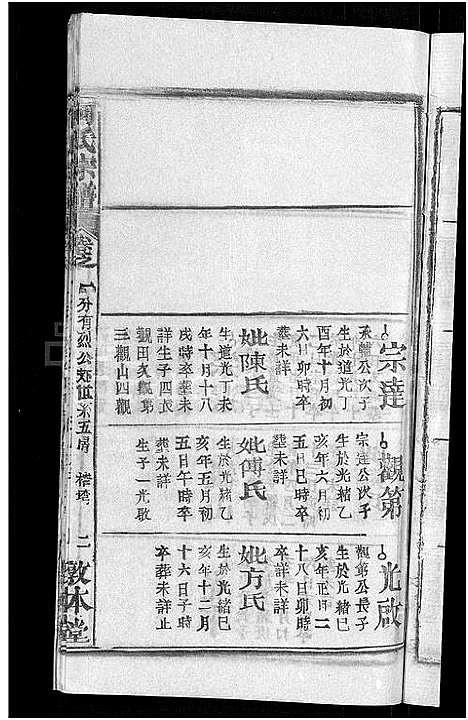 宗達
承輔公次子
生於道光丁
酉年十月初
六日卯時卒
葬未詳
妣陳氏
生道光丁未
年十月十八
戌時卒葬未
詳生子四長
觀田次觀第
三觀山四觀
觀第
宗達公次子
生於光緒乙
亥年六月初
五日巳時卒
塟未詳
妣傅氏
生於光緒乙
亥年五月初
五日午時卒
塟未詳
生子一光啟
光啟
觀第公長子
生於光緒巳
亥年正月二
十八日卯時
卒詳未詳
妣方氏
生於光緒巳
亥年十二月
十六日子時
卒葬未詳止
氏宗譜
卷之
分有烈公
五房
二
敦本堂